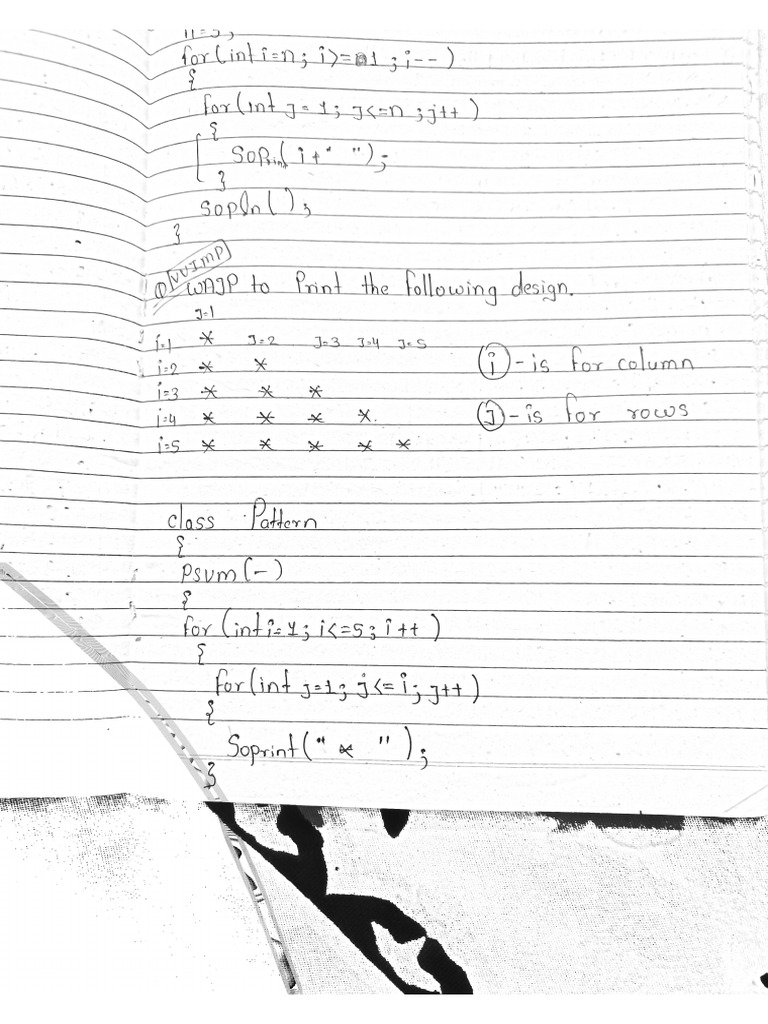 n=5;
for(int i=n; i>=1; i--)
{
for(int j=1; j<=n; j++)
{
SOPrin( i+" ");
}
sopln( );
}
VVIMP
Q WAJP to Print the following design.
J=1
i=1 * J=2 J=3 J=4 J=5
i=2 * *
i=3 * * *
i=4 * * * *
i=5 * * * * *
(i)-is for column
(J)-is for rows
class Pattern
{
Psvm(-)
{
for (int i=1; i<=5; i++)
{
for(int j=1; j<=i; j++)
{
Soprint(" * ");
}